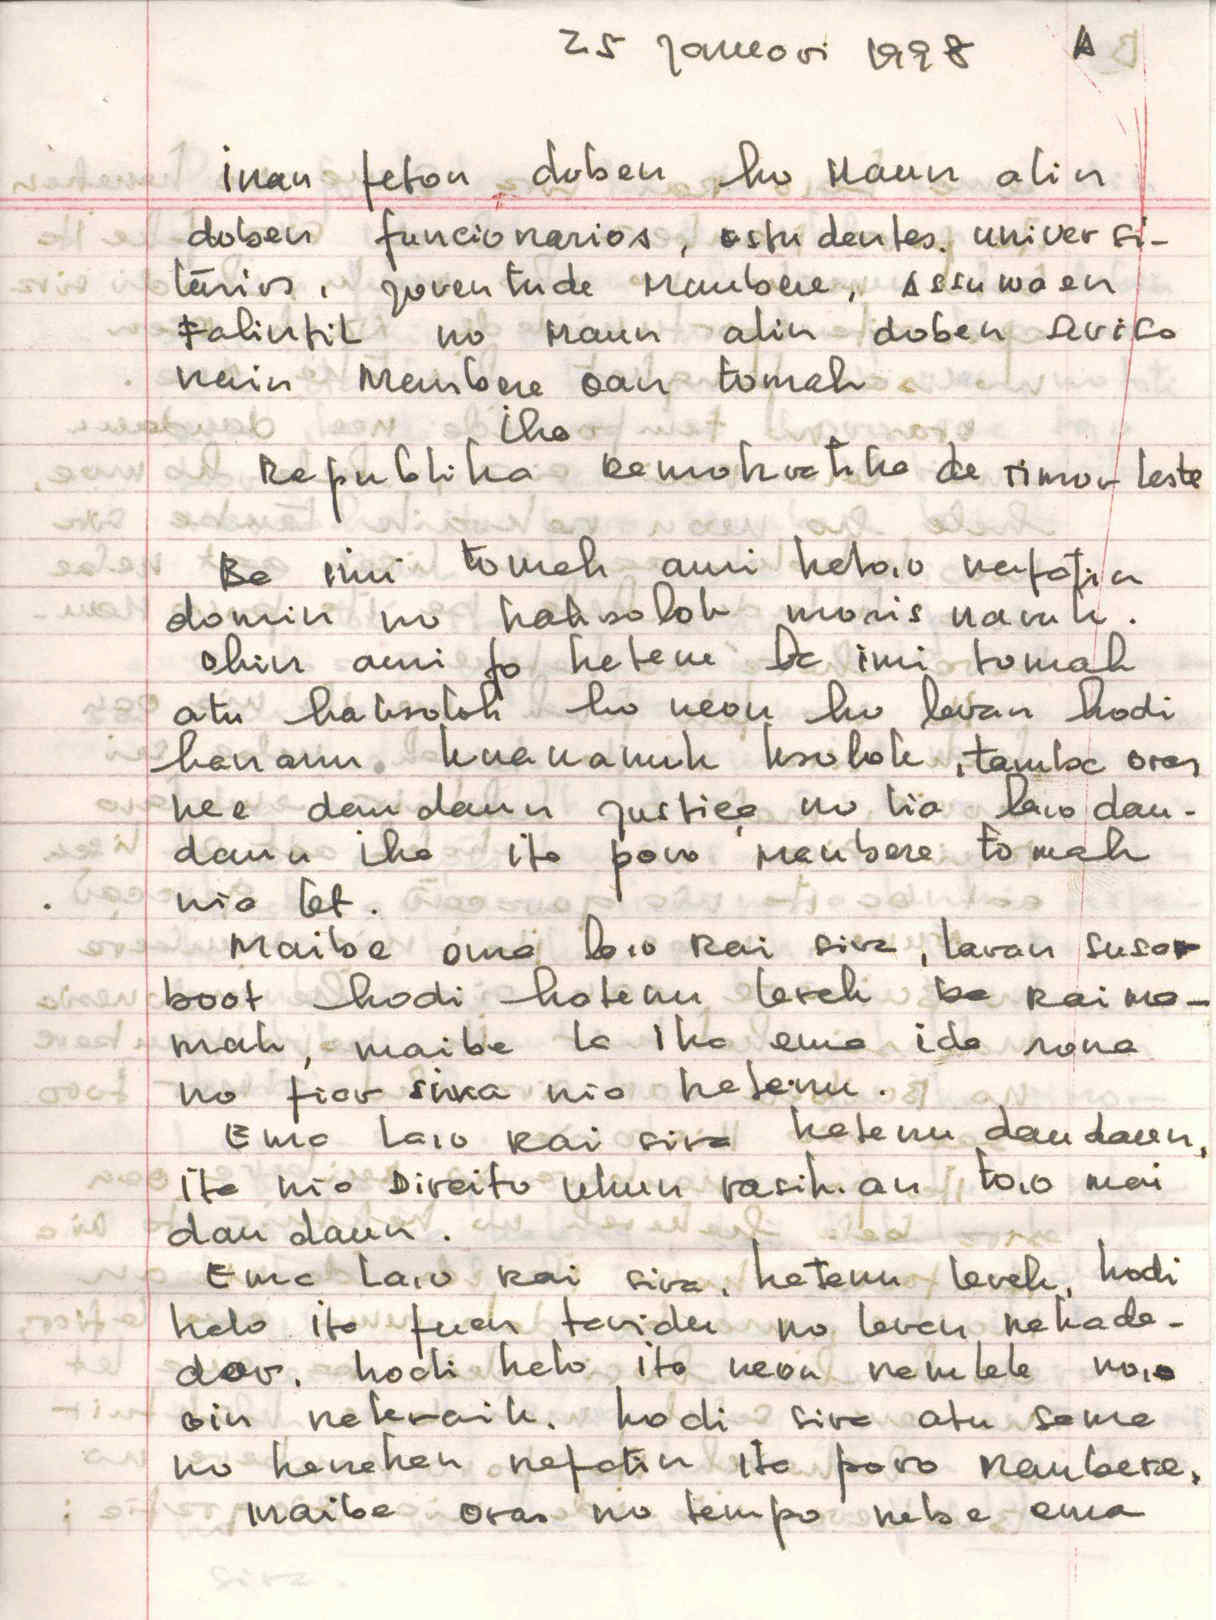 25 Janeori 1998 A
Inan feton doben ho Maun alin
doben funcionarios, estudentes universi-
tários, joventude Maubere, Assuwaen
Falintil no Maun alin doben Servico
nain Maubere oan tomak
iha
Republika Demokratika de Timor Leste
Ba imi tomak ami hato,o nafatin
domin no haksolok moris naruk.
Ohin ami fo hatene ba imi tomak
atu haksolok ho neon ho laran hodi
hananu knananuk ksolok, tamba oras
nee daudaun justiça no lia lao dau-
daun iha ita povo Maubere tomak
nia let.
Maibe ema la,o rai sira, laran susar
boot hodi hatenu lerek ba rai ma-
mak, maibe la iha ema ida rona
no fiar sira nia hatenu.
Ema la,o rai sira hatenu daudaun,
ita nia Direito ukun rasik.an to,o mai
daudaun.
Ema la,o rai sira, hatenu lerek, hodi
halo ita fuan taridu no laran nakado-
dor, hodi halo ita neon namlele no,o
oin nakraik, hodi sira atu sama
no hanehan nafatin ita povo Maubere.
Maibe oras no tempo nebe ema